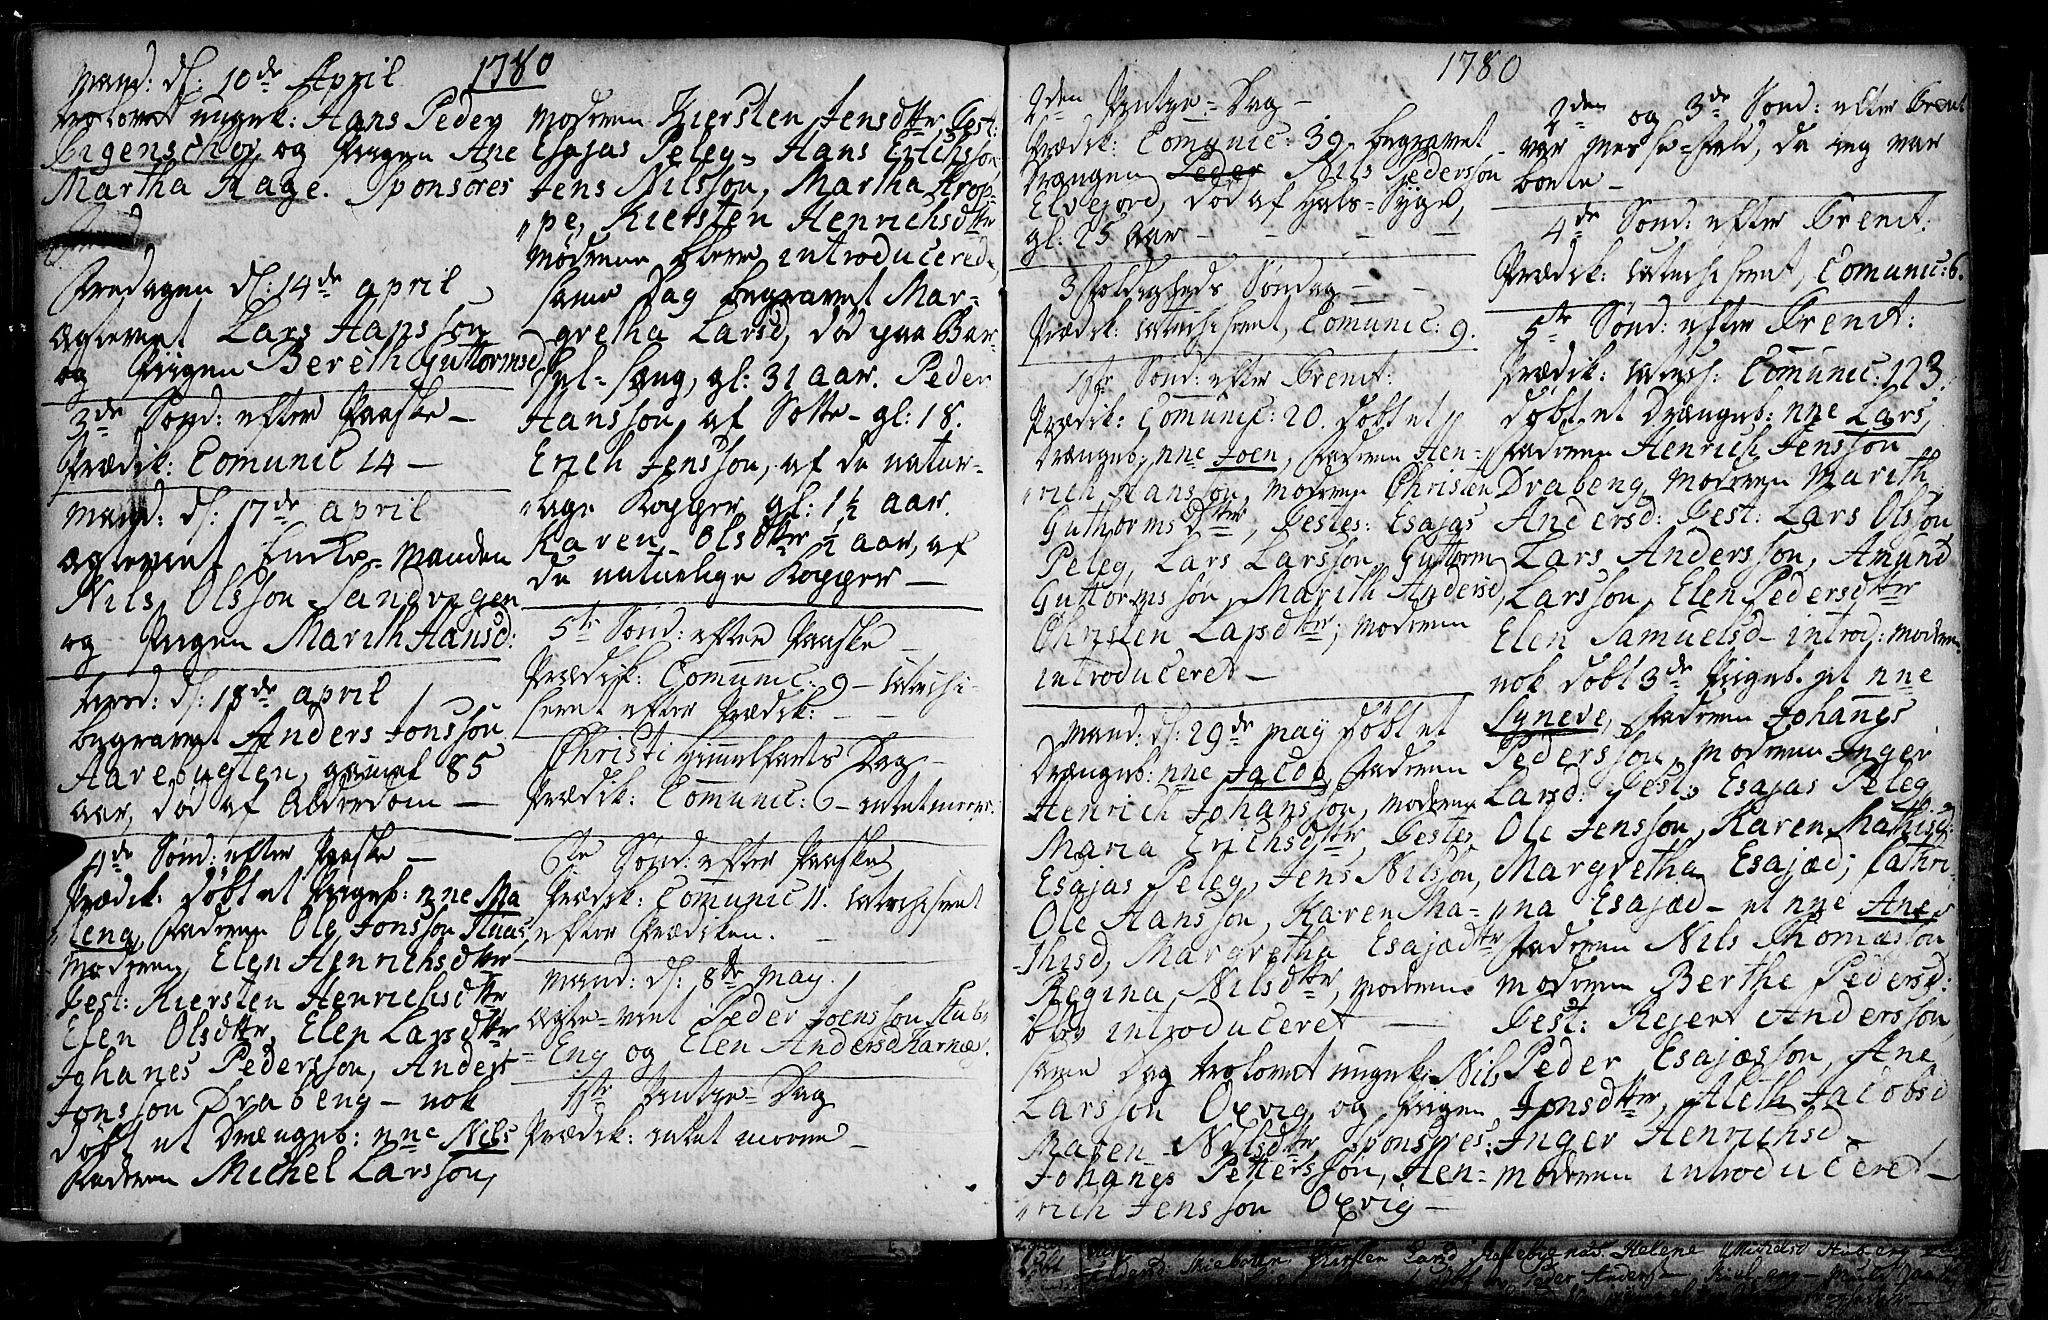 1780
Mand: d: 10de April
trolovet ungk: Hans Peder
Eigenschor og Pigen Ane
Martha Aage. Sponsores
Fredagen d: 14de april
Ægteviet Lars Hansson
og Pigen Bereth Guttormsd
3de Sønd: efter Paaske -
Prædik: Comunic 14 -
Mand: d: 17de april
Ægteviet Enke-Manden
Nils Olsson Sandvigen
og Pigen Marith Hansd:
tirsd: d: 18de april
begravet Anders Jonsson
Aarebugten, gamel 85
aar, død af Alderdom -
4de Sønd: efter Paaske -
Prædik: døbt et Pigeb: nne Ma
leng, Faderen Ole Jonsson
Moderen Elen Henrichsdtter
Gest: Kiersten Henrichsdtter
Elen Olsdtter, Elen Larsdtter
Johanes Pedersson, Anders
Jonsson Drabeng - nok
døbt et Drængeb: nne Nils
Faderen Michel Larsson,
Moderen Kiersten Jensdtter Gest:
Esajas Peleg - Hans Erichsson
Jens Nilsson, Martha Krop-
"pe, Kiersten Henrichsdtter
Mødrene bleve introducered,
samme Dag begravet Mar-
gretha Larsd, død paa Bar-
sel-sæng, gl: 31 aar. Peder
Hansson af Sotte - gl: 18.
Erich Jensson, af de natur-
"lige Kopper gl: 1½ aar.
Karen Olsdtter ½ aar, af
de naturlige Kopper -
5te Sønd: efter Paaske -
Prædik: Comunic: 9 - catechi-
seret efter Prædik: - -
Christi Himmelfarts Dag -
Prædik: Comunic: 6 - intet meere.
6te Sønd: efter Paaske
Prædik: Comunic 11. catechiseret
efter Prædiken. -
Mand: d: 8de May.
Ægte-viet Peder Joensson Stub
= Eng og Elen Andersd Karnæs.
1ste Pintse-Dag
Prædik: intet meere -
1780
2den Pintse-Dag -
Prædik: Comunic: 39. begravet
Drængen Peder Nils Pedersson
Elvejord, død af Hals-Syge,
gl: 25 Aar - - - -
3foldigheds Søndag - -
Prædik: catechiseret, Comunic: 9.
1ste Sønd: efter Trenit:
Prædik: Comunic: 20. døbt et
Drængeb: nne Joen, Faderen Hen-
"rich Hansson, Moderen Christen
Guthormsdtter, Gestes: Esajas
Peleg, Lars Larsson, Guttorm
Guttormsson, Marith Andersd,
Christen Larsdtter; Moderen
introduceret -
Mand: d: 29de May døbt et
Drængeb: nne Jacob, Faderen
Henrich Johansson, Moderen
Maria Erichsdtter, Gestes
Esajas Peleg, Jens Nilsson,
Ole Hansson, Karen Ma-
-thisd, Margretha Esajædtter
Regina Nilsdtter, Moderen
blev introduceret -
samme Dag trolovet ungk: Nils
Larsson Oxvig og Pigen
Maren Nilsdtter, Sponsores:
Johanes Pettersson, Hen-
"rich Jensson Oxvig -
2den og 3de Sønd: efter Trenit
var Messe-fald, da jeg var
borte -
4de Sønd: efter Trenit:
Prædik: catechiseret, Comunic: 6.
5te Sønd: efter Trenit:
Prædik: catech: Comunic: 123.
døbt et Drængeb: nne Lars,
Faderen Henrich Jensson
Drabeng, Moderen Marith
Andersd: Gest: Lars Olsson
Lars Andersson, Amund
Larsson, Elen Pedersdtter
Elen Samuelsd - introd: Moderen
nok døbt 3de Pigeb. et nne
Syneve, Faderen Johanes
Pedersson, Moderen Inger
Larsd: Gest: Esajas Peleg
Ole Jensson, Karen Mathisd:
Margretha Esajæd; Cathri-
"na Esajæd - et nne Ane,
Faderen Nils Thomæsson
Moderen Berthe Pedersd:
Gest: Rejert Andersson,
Peder Esajæsson, Ane
Jonsdtter, Aleth Jacobsd
Inger Henrichsd -
Moderen introduceret -